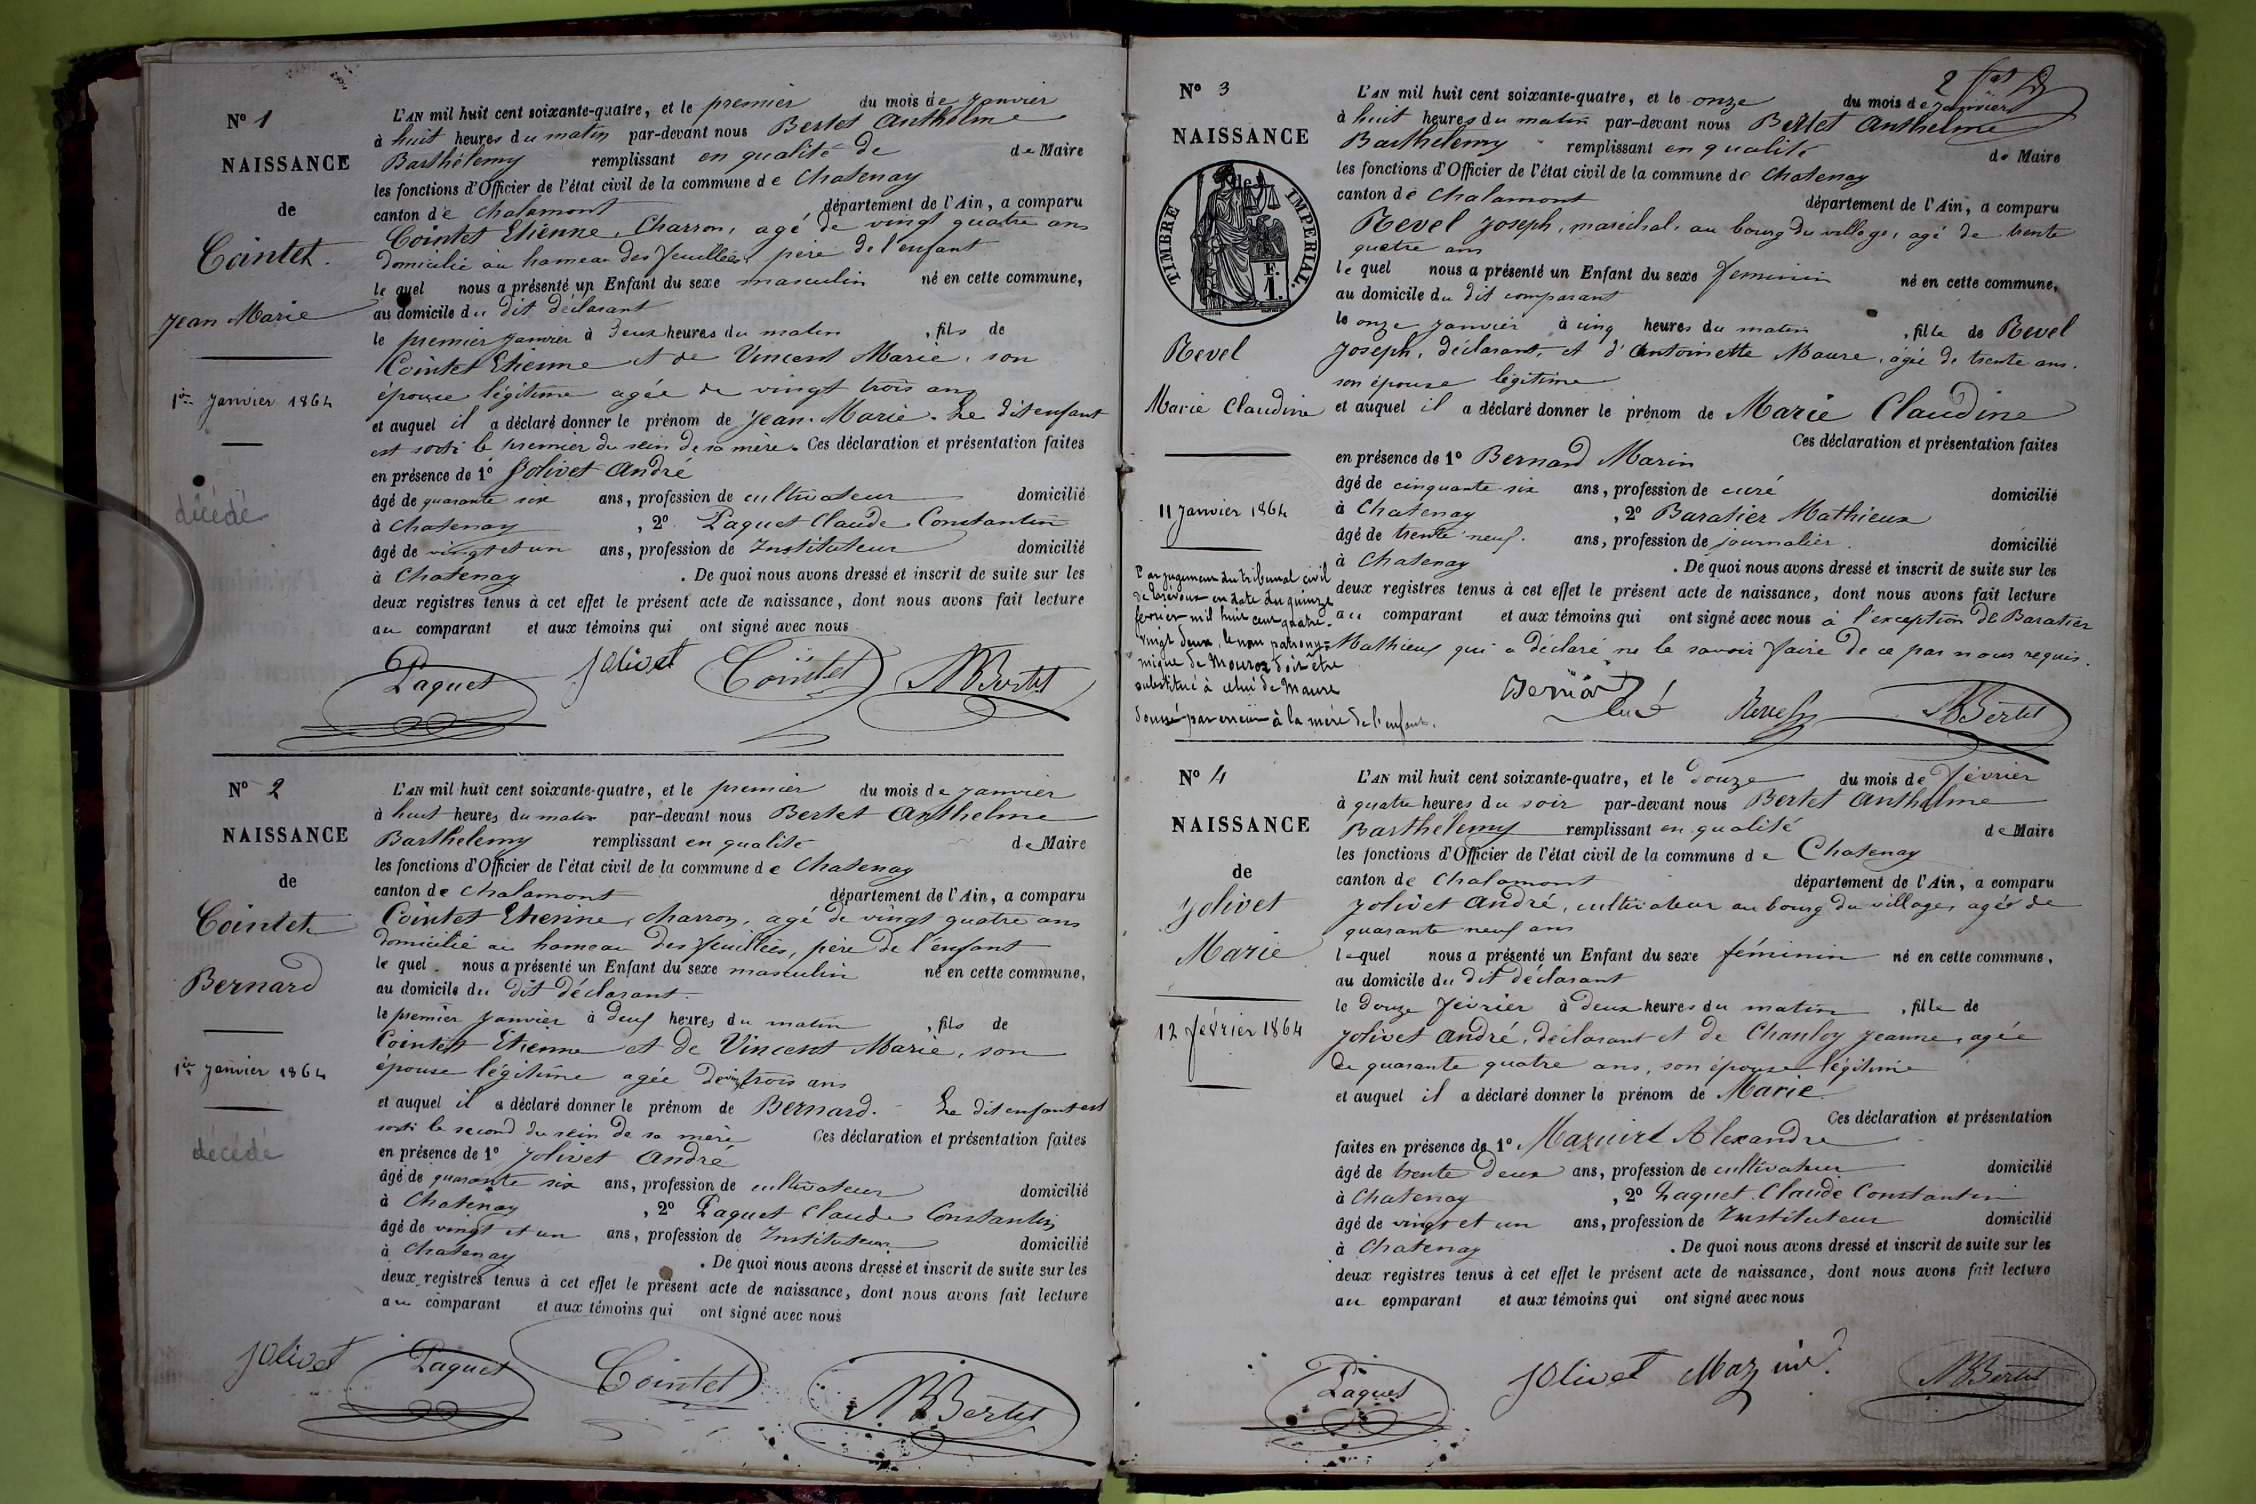 N° 1
NAISSANCE
de
Cointet
Jean Marie
1er Janvier 1864
décédé
L'AN mil huit cent soixante-quatre, et le premier du mois de Janvier
à huit heures du matin par-devant nous Bertet Anthelme
Barthélemy remplissant en qualité de de Maire
les fonctions d'Officier de l'état civil de la commune de Chatenay
canton de Chalamont département de l'Ain, a comparu
Cointet Etienne, Charron, agé de vingt quatre ans
domicilié au hameau des feuillées, père de l'enfant
le quel nous a présenté un Enfant du sexe masculin né en cette commune,
au domicile du dit déclarant
le premier janvier à deux heures du matin, fils de
Cointet Etienne et de Vincent Marie, son
épouse légitime agée de vingt trois ans
et auquel il a déclaré donner le prénom de Jean Marie. Le dit enfant
est sorti le premier du sein de sa mère. Ces déclaration et présentation faites
en présence de 1° Jolivet André
âgé de quarante six ans, profession de cultivateur domicilié
à Chatenay, 2° Paquet Claude Constantin
âgé de vingt et un ans, profession de Instituteur domicilié
à Chatenay. De quoi nous avons dressé et inscrit de suite sur les
deux registres tenus à cet effet le présent acte de naissance, dont nous avons fait lecture
au comparant et aux témoins qui ont signé avec nous
Paquet Jolivet Cointet ABBertet
N° 2
NAISSANCE
de
Cointet
Bernard
1er Janvier 1864
décédé
L'AN mil huit cent soixante-quatre, et le premier du mois de janvier
à huit heures du matin par-devant nous Bertet Anthelme
Barthélemy remplissant en qualité de Maire
les fonctions d'Officier de l'état civil de la commune de Chatenay
canton de Chalamont département de l'Ain, a comparu
Cointet Etienne, charron, agé de vingt quatre ans
domicilié au hameau des feuillées, père de l'enfant
le quel nous a présenté un Enfant du sexe masculin né en cette commune,
au domicile du dit déclarant.
le premier janvier à deux heures du matin, fils de
Cointet Etienne et de Vincent Marie, son
épouse légitime agée de vingt trois ans
et auquel il a déclaré donner le prénom de Bernard. Le dit enfant est
sorti le second du sein de sa mère Ces déclaration et présentation faites
en présence de 1° Jolivet André
âgé de quarante six ans, profession de cultivateur domicilié
à Chatenay, 2° Paquet Claude Constantin
âgé de vingt et un ans, profession de Instituteur domicilié
à Chatenay. De quoi nous avons dressé et inscrit de suite sur les
deux registres tenus à cet effet le présent acte de naissance, dont nous avons fait lecture
au comparant et aux témoins qui ont signé avec nous
Jolivet Paquet Cointet ABBertet
2
N° 3
NAISSANCE
de
TIMBRE IMPERIAL
F.
1.
Revel
Marie Claudine
11 Janvier 1864
Par jugement du tribunal civil
de Trévoux en date du quinze
février mil huit cent quatre-
vingt deux, le nom patrony-
mique de Mouroz doit être
substitué à celui de Maure
donné par erreur à la mère de l'enfant.
L'AN mil huit cent soixante-quatre, et le onze du mois de janvier
à huit heures du matin par-devant nous Bertet Anthelme
Barthélemy remplissant en qualité de Maire
les fonctions d'Officier de l'état civil de la commune de Chatenay
canton de Chalamont département de l'Ain, a comparu
Revel Joseph, maréchal, au bourg du village, agé de trente
quatre ans
le quel nous a présenté un Enfant du sexe feminin né en cette commune,
au domicile du dit comparant
le onze janvier à cinq heures du matin, fille de Revel
Joseph, déclarant, et d'Antoinette Maure, agée de trente ans.
son épouse légitime
et auquel il a déclaré donner le prénom de Marie Claudine
Ces déclaration et présentation faites
en présence de 1° Bernard Marin
âgé de cinquante six ans, profession de curé domicilié
à Chatenay, 2° Baratier Mathieu
âgé de trente neuf. ans, profession de journalier. domicilié
à Chatenay. De quoi nous avons dressé et inscrit de suite sur les
deux registres tenus à cet effet le présent acte de naissance, dont nous avons fait lecture
au comparant et aux témoins qui ont signé avec nous à l'exception de Baratier
Mathieu qui a déclaré ne le savoir faire de ce par nous requis.
Bernard Curé Revel ABBertet
N° 4
NAISSANCE
de
Jolivet
Marie
12 février 1864
L'AN mil huit cent soixante-quatre, et le douze du mois de février
à quatre heures du soir par-devant nous Bertet Anthelme
Barthélemy remplissant en qualité de Maire
les fonctions d'Officier de l'état civil de la commune de Chatenay
canton de Chalamont département de l'Ain, a comparu
Jolivet André, cultivateur au bourg du village, agé de
quarante neuf ans
lequel nous a présenté un Enfant du sexe féminin né en cette commune,
au domicile du dit déclarant
le douze février à deux heures du matin, fille de
Jolivet André, déclarant et de Chanloy Jeanne, agée
de quarante quatre ans, son épouse légitime
et auquel il a déclaré donner le prénom de Marie
Ces déclaration et présentation
faites en présence de 1° Mazuirt Alexandre
âgé de trente deux ans, profession de cultivateur domicilié
à Chatenay, 2° Paquet Claude Constantin
âgé de vingt et un ans, profession de Instituteur domicilié
à Chatenay. De quoi nous avons dressé et inscrit de suite sur les
deux registres tenus à cet effet le présent acte de naissance, dont nous avons fait lecture
au comparant et aux témoins qui ont signé avec nous
Paquet Jolivet ABBertet